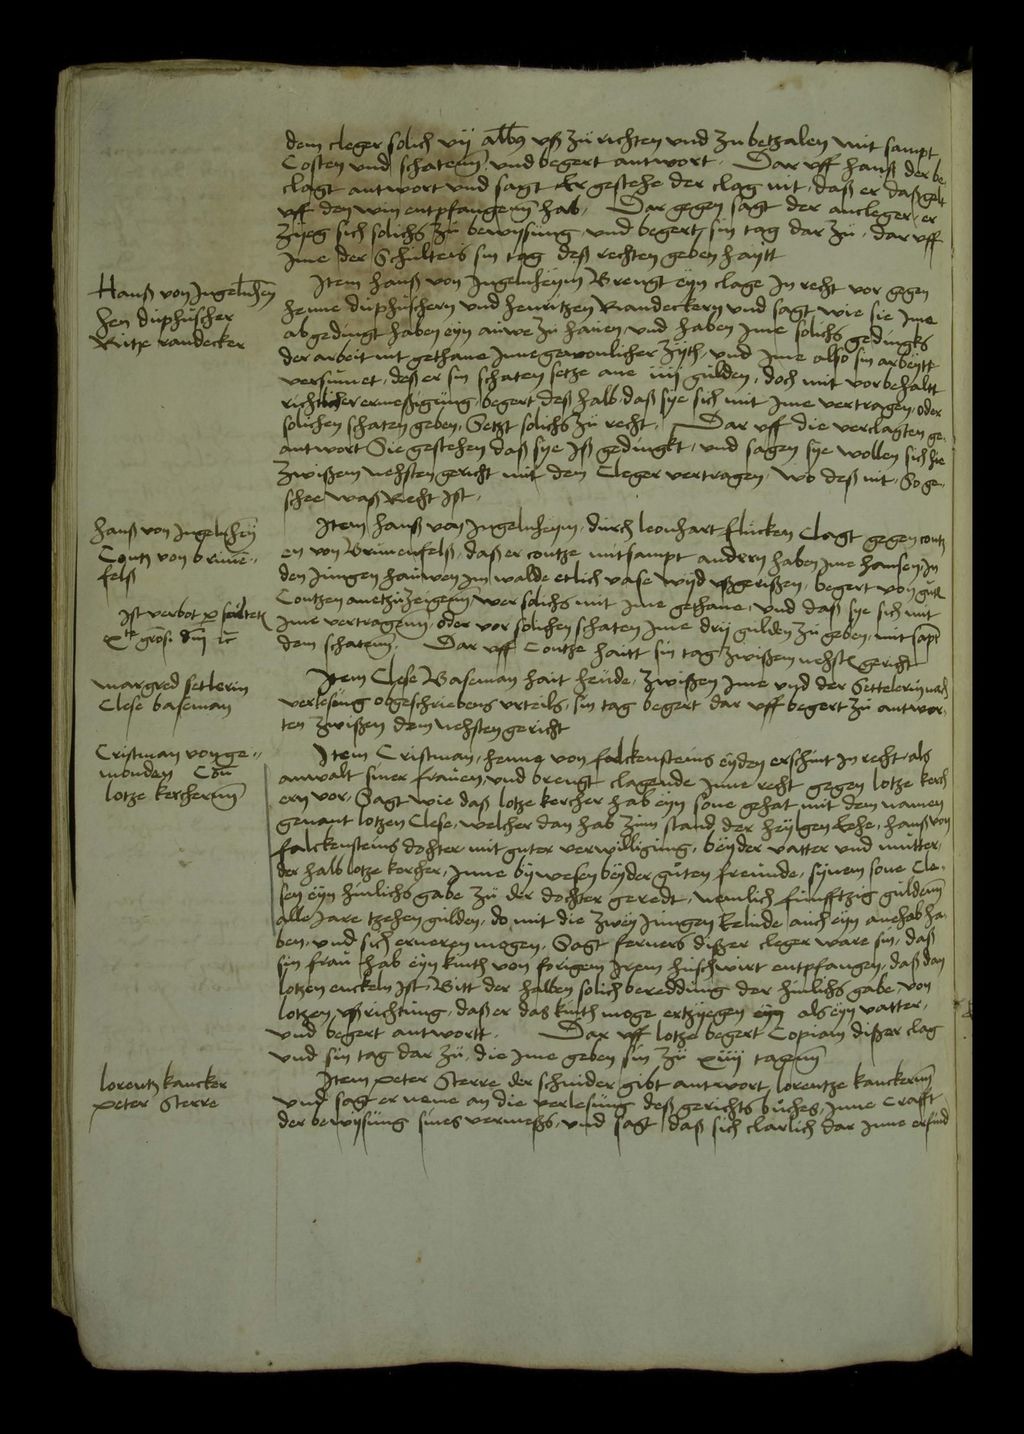 dem cleger solich vij albus vß zü richten vnd zu betzalen mit sampt
Costen vnd schatenn, vnd begert antwort. Dar vff hanß der be
clagt antwort vnd sagt Er gestehe der clag nit, daß er daß gelt
vff den win entpfangenn hab, Dar gegen sagt der ancleger, er
zijeg sich solichs zü bewysüng, vnd begert sin tag dar zü, dar vff
Ime der Schulteis sin tag deß rechten geben haytt
Hanß von Ingelnheym
hen düphuscher
Ritze randecker
Item hanß von Ingelnheym Brengt eyn clage In recht vor gegen
henne duphüschern vnd henritzen Randeckern vnd sagt wie sie Ime
abgedüngt haben eyn auwe zü hauen vnd haben Ime solichs gedüngks
der arbeit nit gethane Inne gewonlicher zijth, vnd Ime also sin arbeytt
versümet, deß er sin schaten setze ane iiij gülden, doch mit vorbehaltt
richtlicher ermeßigüng, begert deß halb, daß sye sich mit Ime vertragen, oder
solichen schaten geben, Setzt solichs zü recht, Dar vff die verclagten ge
antwort Sie gestehen daß sye Iß gedüngkt, vnd sagen sye wollen sich hie
zwißenn nehsten gericht mit dem Cleger vertragen, wo deß nit, So ge
schee waß Recht Ist,
hanß von Ingelnheym
Contz von brünen
felß
Ist verbot
Item hanß von Ingelnheym, dürch leonhart flücken Clagt gegen contz
en von Brünenfelß, daß er contze mitsampt andern haben Ime hansen In
den Jungen hauwen Im walde etlich vase wyd vßgerißen, begert von
Contzen anetzüzeigenn, wer solichs mit Ime gethane, vnd daß sye sich mit
Ime vertragenn, oder vor solichen schaten Ime drij gulden zü geben, mit sampt
dem schatenn, Dar vff Contze haitt sin tag zwißen nehst gericht
margred setlerin
Clese baseman
Item Clese Baseman hait heüde, zwißen Ime vnd der Settelerin nach
verlesüng obgeschriebens vrteils, sin tag begert dar vff begert zü antwor
ten zwißen dem nehsten gericht
Cristman von ge
monden
lotze kerchernn
Item Cristman, henne von falckensteins eyden erschint In recht, als
anwalt siner frauen, vnd brengt clagende Inne recht gegen lotze kerch
ern vor, Sagt wie daß lotze kercher hab eyn sone gehat mit dem namen
genant lotzen Clese, welcher dan hab zum stand der heylgen Ehe, hanß von
falckensteins dochter mit guter verwilligüng, beyder vatter vnd mutter,
der halb lotze kercher, Inne bywesen beyder güten freünde, synem sone Cle
sen eyn hinlichs gabe zü der dochter geredt, nemlich fünfftzig güldenn
alle Jare tzehen gülden, do mit die zwey Jüngen Elinde auch eyn anehab ha
ben, vnd sich erneren mögen, Sagt ferners dißer cleger ware sin, daß
sin frau hab eyn kinth von forigem Irem hüschwirt entpfangen, daß dan
lotzen enckeln Ist, Bitt der halben solich beredding der hinlichs gabe, von
lotzen, vßrichtüng, daß er das kinth moge ertzyegen eyn als eyn vatter,
vnd begert antwortt. Dar vff lotze begert Copiam dißer clag
vnd sin tag dar zü, die Ime geben sin zü xiiij tagenn
lorentz kancker
peter Sterre
Item peter Sterre der schnider gibt antwort lorentze kanckernn
vnd sagt er neme an die verlesüng deß gerichts büches, Inne crafft
der bewysüng sines vermeßs, vnd sagt daß sich clarlich dar Inne erfind